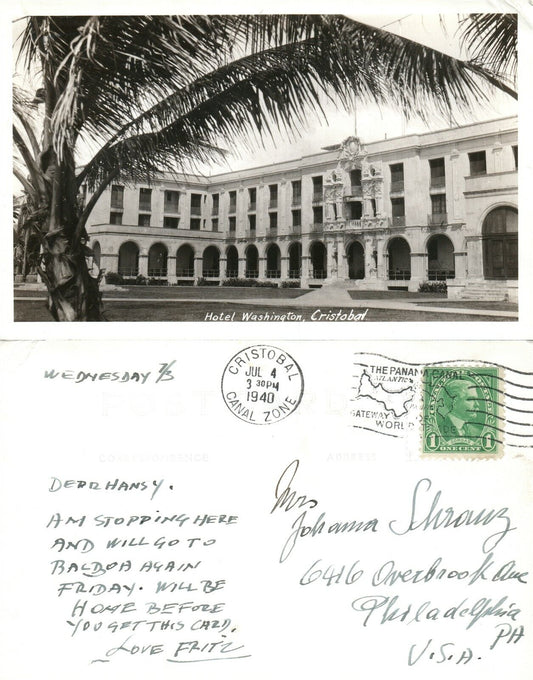 Hotel Washington, Cristobal
WEDNESDAY 7/3
CRISTOBAL
JUL 4
3 30 PM
1940
CANAL ZONE
THE PANAMA CANAL
ATLANTIC
GATEWAY
WORL
1 1
ONE CENT
POSTCARD
CORRESPONDENCE
ADDRESS
DEAR HANSY.
AM STOPPING HERE
AND WILL GO TO
BALBOA AGAIN
FRIDAY. WILL BE
HOME BEFORE
YOU GET THIS CARD.
LOVE FRITZ
Mrs
Johanna Schranz
6416 Overbrook Ave
Philadelphia
PA
U.S.A.